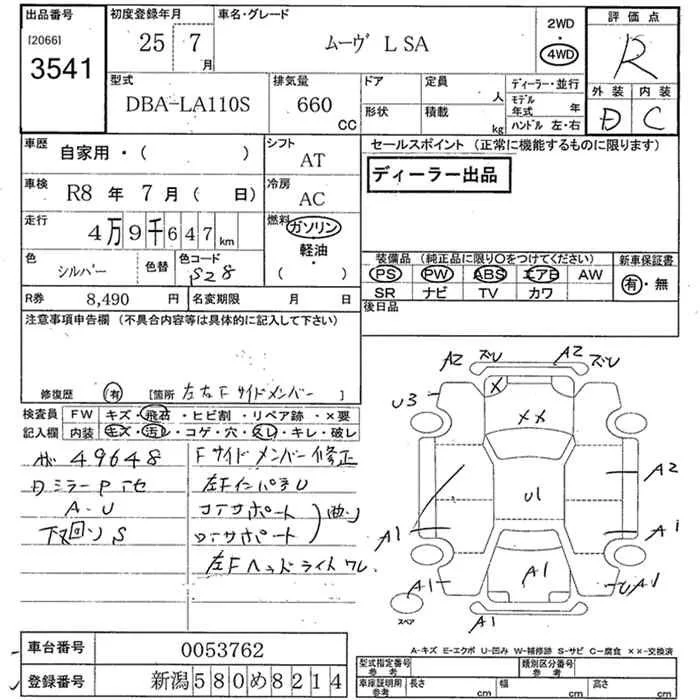 出品番号
[2066]
3541
初度登録年月
25 7
月
車名・グレード
ムーヴ L SA
2WD
・
4WD
評価点
R
外装 内装
D C
型式
DBA-LA110S
排気量
660
CC
ドア
形状
定員
人
積載
kg
ディーラー・並行
モデル
年式 年
ハンドル 左・右
車歴
自家用・( )
シフト
AT
車検
R8 年 7 月 ( 日)
冷房
AC
走行
4万9千647km
燃料
ガソリン
・
軽油
・
( )
色
シルバー
色替
色コード
S28
R券 8,490 円
名変期限 月 日
セールスポイント (正常に機能するものに限ります)
ディーラー出品
装備品 (純正品に限り○をつけてください)
新車保証書
PS PW ABS エアB AW
有・無
SR ナビ TV カワ
後日品
注意事項申告欄 (不具合内容等は具体的に記入して下さい)
修復歴 有 [箇所 左右Fサイドメンバー ]
検査員
記入欄
FW キズ・飛石・ヒビ割・リペア跡・×要
内装 キズ・汚レ・コゲ・穴・スレ・キレ・破レ
49648
Fサイドメンバー修正
左FインパネU
A.U
下回りS
コアサポート
サポート
曲り
左Fヘッドライトワレ
A2 ズU A2 ズU
U3
X
XX
A2
U1
A1 A1
A1 A1 UA1
A1
スペア
A-キズ E-エクボ U-凹み W-補修跡 S-サビ C-腐食 ××-交換済
車台番号 0053762
登録番号 新潟580め8214
型式指定番号
参考
類別区分番号
参考
車庫証明用
参考
長さ cm
幅 cm
高さ cm